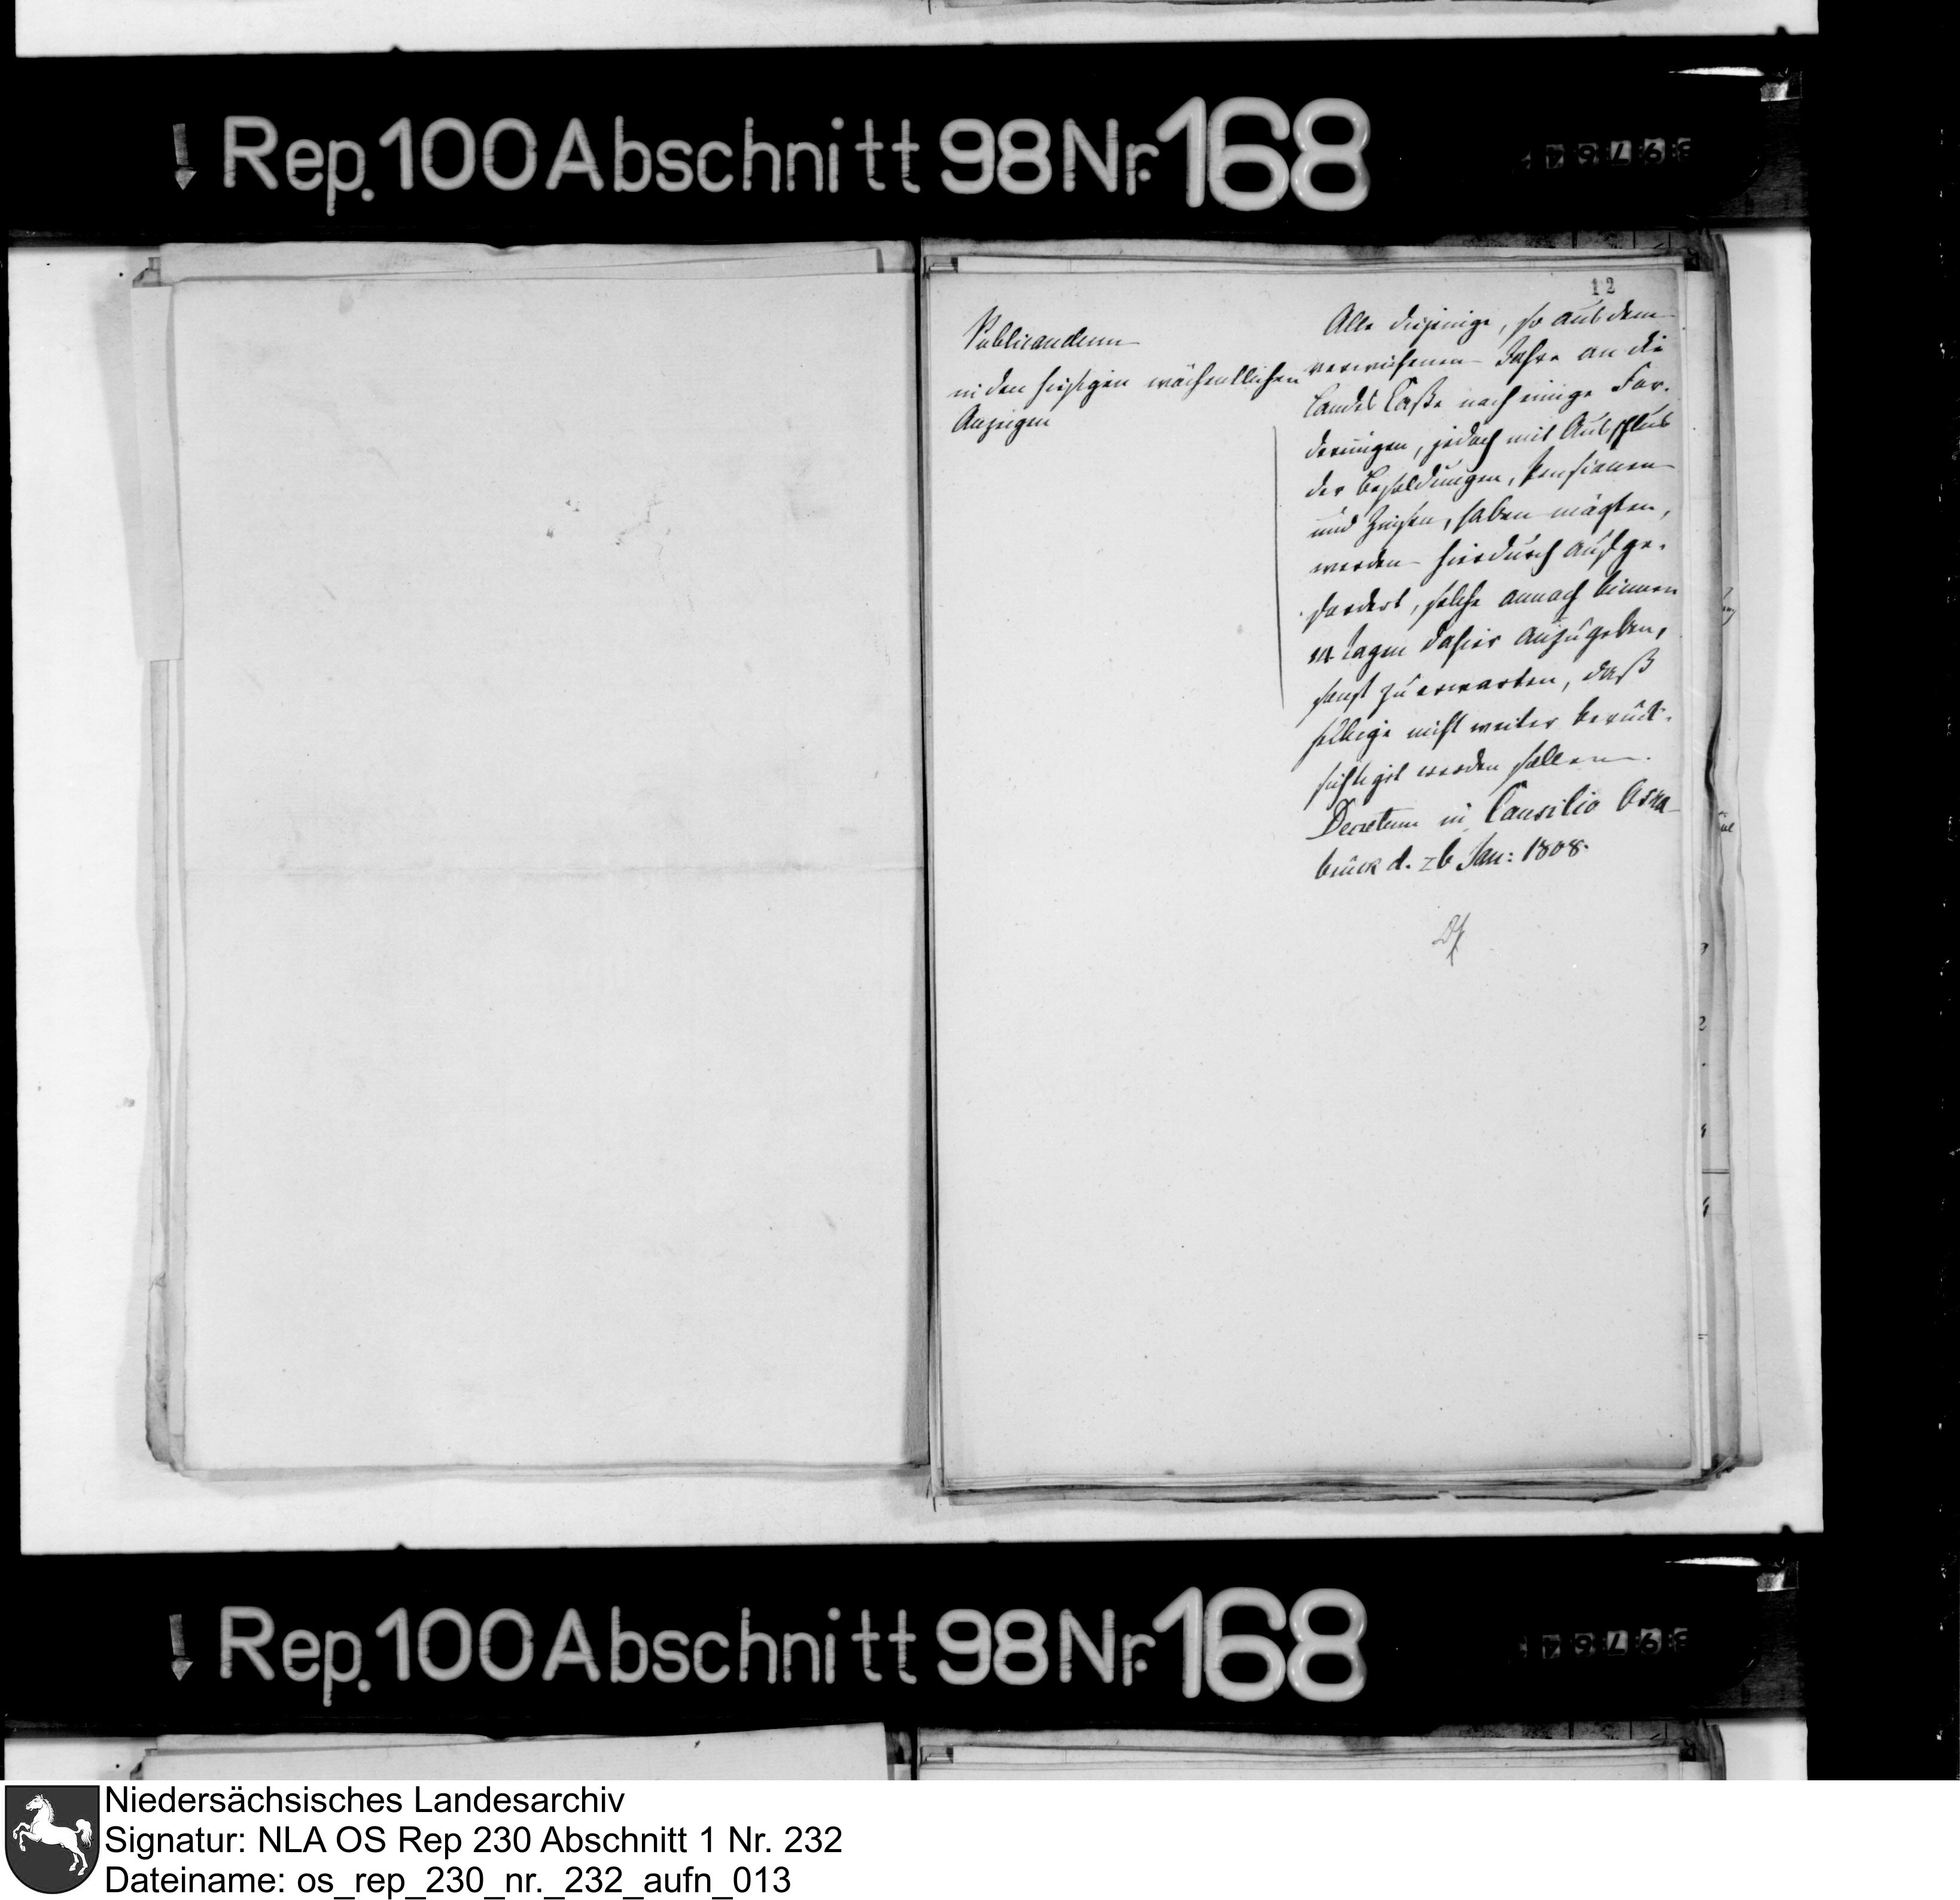 Rep. 100 Abschnitt 98 Nr. 168
12
Publicandum
in den hiesigen wöchentlichen
Anzeigen
Alle diejenige, so aus dem
verwichenen Jahre an die
Landes Caße noch einige For-
derungen, jedoch mit Ausschlus
der Besoldungen, Pensionen
und Zinsen, haben mögten,
werden hierdurch aufge-
fordert, solche annoch binnen
14 Tagen dahier anzugeben,
sonst zu erwarten, daß
selbige nicht weiter berück-
sichtiget werden sollen.
Decretum in Consilio Osna-
brück d. 26 Jan: 1808.
Rep. 100 Abschnitt 98 Nr. 168
Niedersächsisches Landesarchiv
Signatur: NLA OS Rep 230 Abschnitt 1 Nr. 232
Dateiname: os_rep_230_nr._232_aufn_013